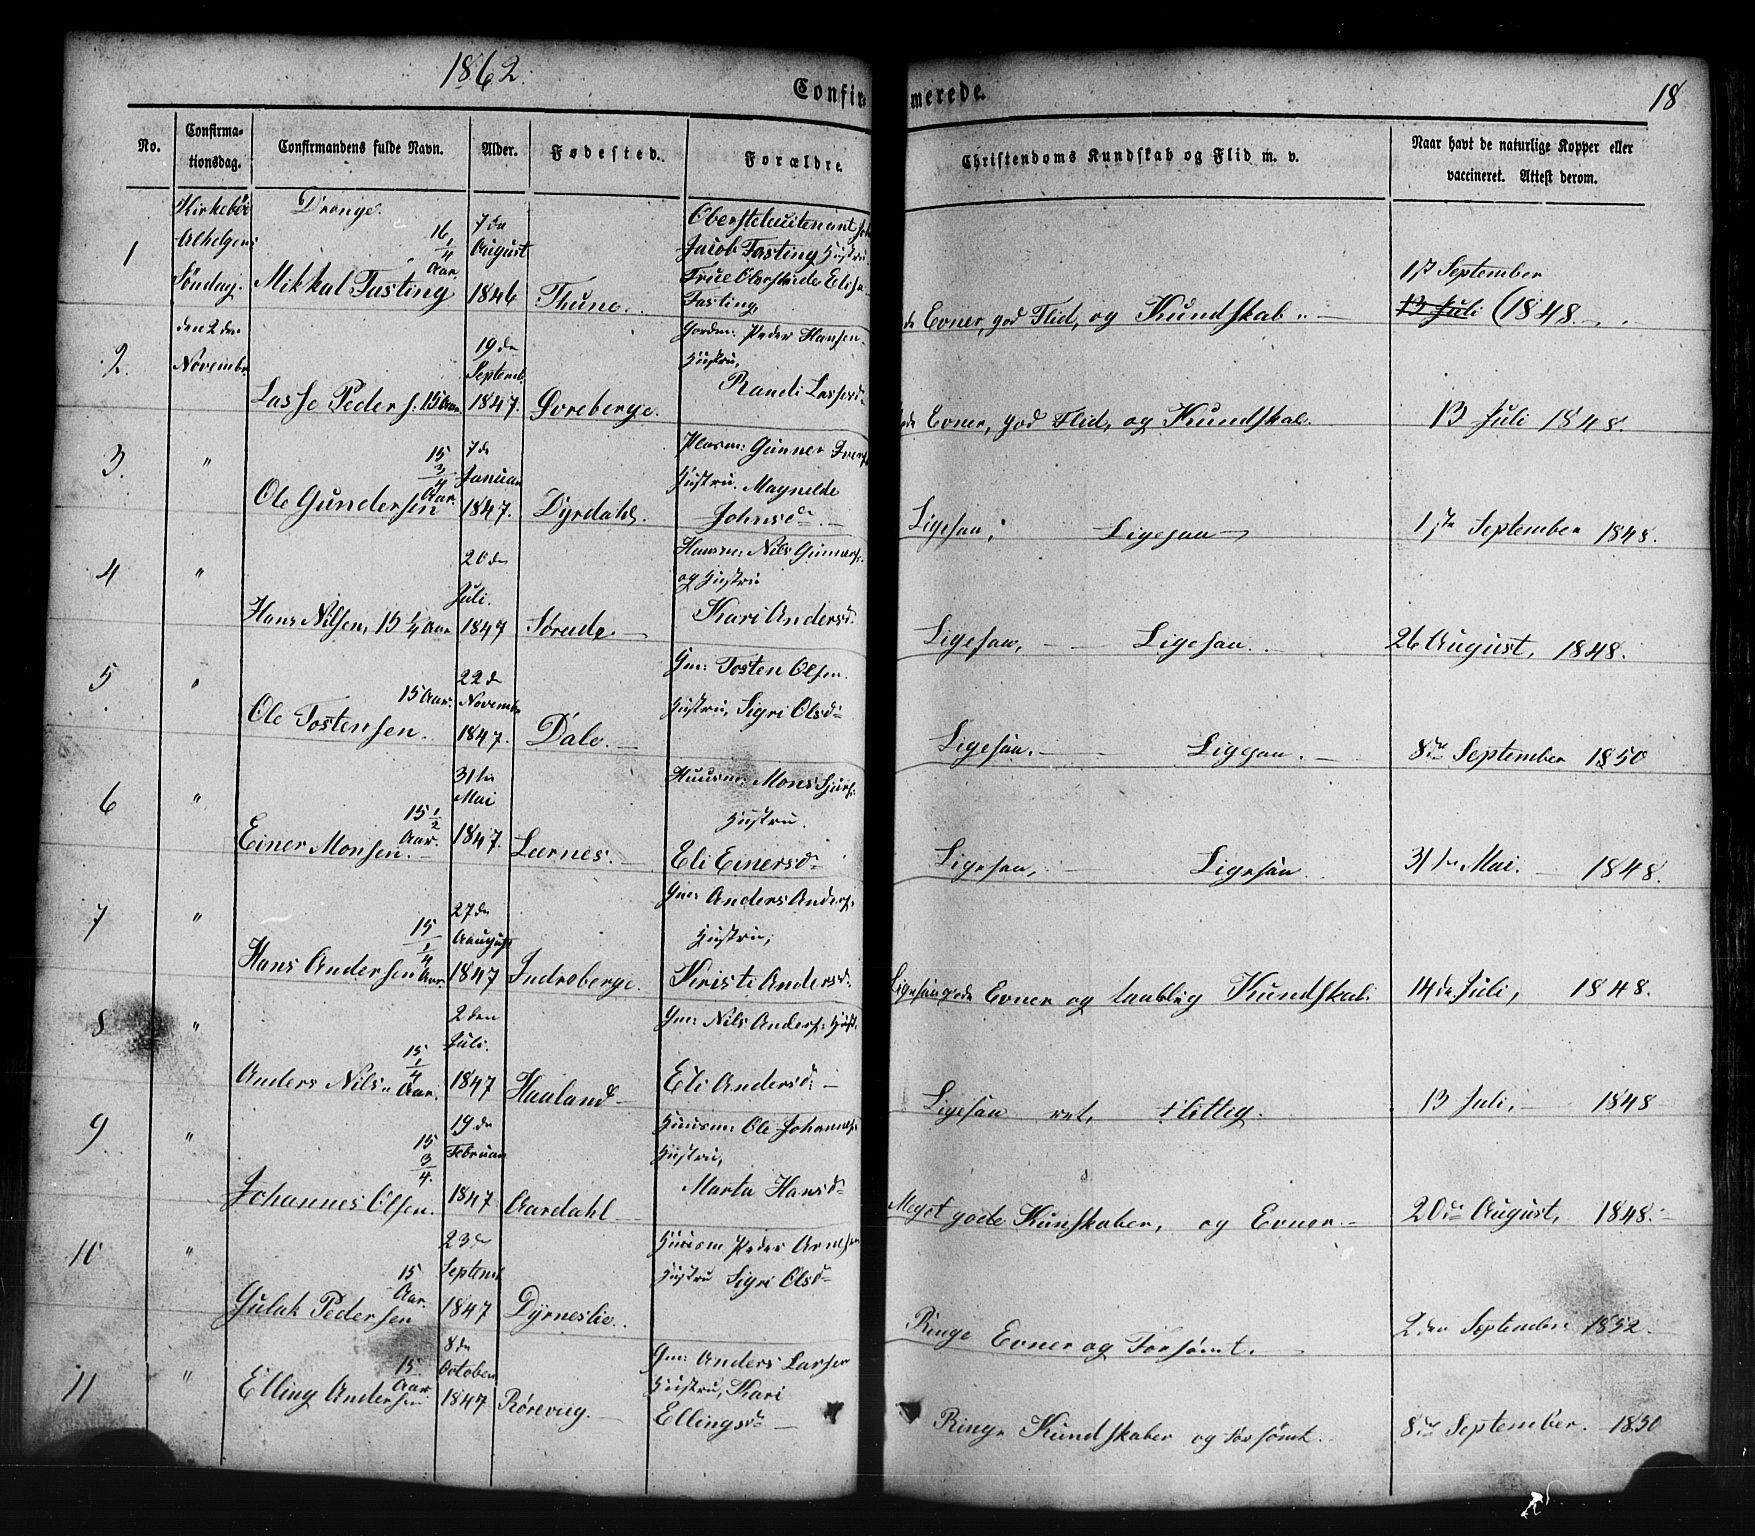 1862.
Confir-
merede.
18
No.
Confirma-
tionsdag.
Confirmandens fulde Navn.
Alder.
Fødested.
Forældre
Christendoms Kundskab og Flid m. v.
Naar havt de naturlige Kopper eller
vaccineret. Attest derom.
Kirkebøe
Alhelgens
Søndag.
den 2den
November
Drenge.
1
Mikkal Fasting
16 1/4 Aar
7de August 1846
Thune.
Obersteleutenant
Jacob Fasting Hustru
Frue Elise
Fasting
Evner, god Flid, og Kundskab.
1st September
13 Juli (1848.
2.
Lasse Peders:
15 Aar
19de Septemb. 1847.
Øvreberge.
Gordm: Peder Hansen
Hustru,
Randi Lassesd
Evner, god Flid, og Kundskab.
13 Juli 1848.
3.
"
Ole Gundersen
15 3/4 Aar
7de Januar 1847.
Dyrdahl.
Gunner
Hustru. Magnelde
Johnsd
Ligesaa, Ligesaa
1ste September 1848.
4
"
Hans Nilsen,
15 1/4 Aar
20de Juli. 1847
Sørude.
Huusm: Nils Gunners:
og Hustru
Kari Andersd
Ligesaa, Ligesaa.
26 August, 1848.
5
"
Ole Tostensen.
15 Aar.
22de November 1847.
Dale.
Gm: Tosten Olsen.
Hustru, Sigri Olsd
Ligesaa. Ligesaa.
8de September 1850
6
"
Einer Monsen.
15 1/2 Aar.
31te Mai 1847.
Lærnes.
Huusm: Mons Sjurs:
Hustru.
Eli Einersd
Ligesaa, Ligesaa.
31te Mai. 1848.
7
"
Hans Andersen
15 1/4 Aar
27de Aaugust 1847
Indreberge.
Gm: Anders Anders:
Hustru,
Kristi Andersd.
Ligesaa gode Evner og taablig Kundskab.
14de Juli, 1848.
8
"
Anders Nils
15 1/4 Aar.
2den Juli. 1847
Haaland
Gm: Nils Anders: Hust:
Eli Andersd:
Ligesaa ret, flittig.
13 Juli, 1848
9
"
Johannes Olsen.
15 3/4.
19de Februar 1847
Aardahl
Huusm: Ole Johannes:
Hustru,
Marta Hansd
Meget gode Kunskaber, og Evner.
20de August, 1848.
10
"
Gulak Pedersen
15 Aar.
23de Septemb 1847
Dyrneslie.
Huusm Peder Arnesen
Hustru Sigri Olsd
Ringe Evner og Forsømt.
2den September 1852.
11
"
Elling Andersen
15 Aar.
8de October 1847
Rørevug.
Gm: Anders Larsen
Hustru, Kari
Ellingsd
Ringe Kundskaber og forsømt.
8de September. 1850